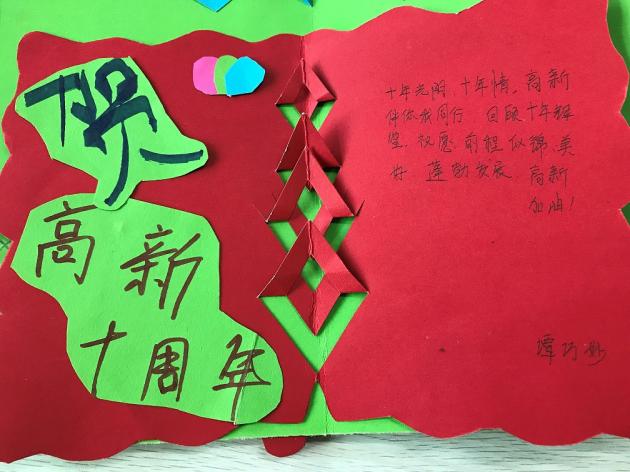 贺
高新
十周年
十年光阴,十年情,高新
伴你我同行 回顾十年辉
煌,祝愿前程似锦,美
好 蓬勃发展 高新
加油!
谭巧妙